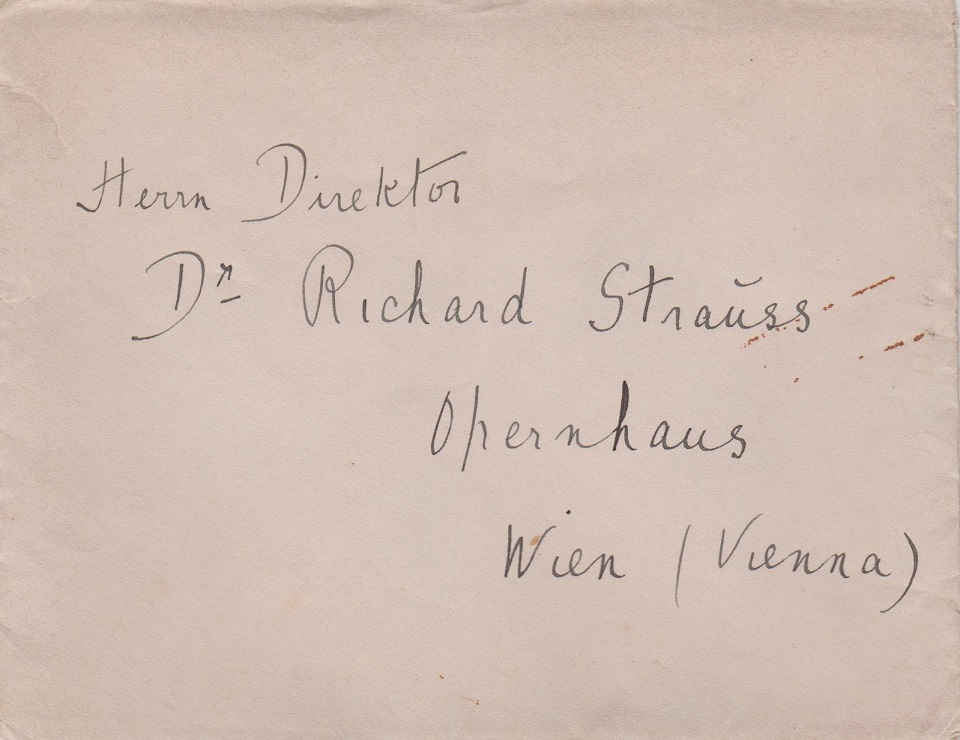 Herrn Direktor
Dr Richard Strauss
Opernhaus
Wien (Vienna)